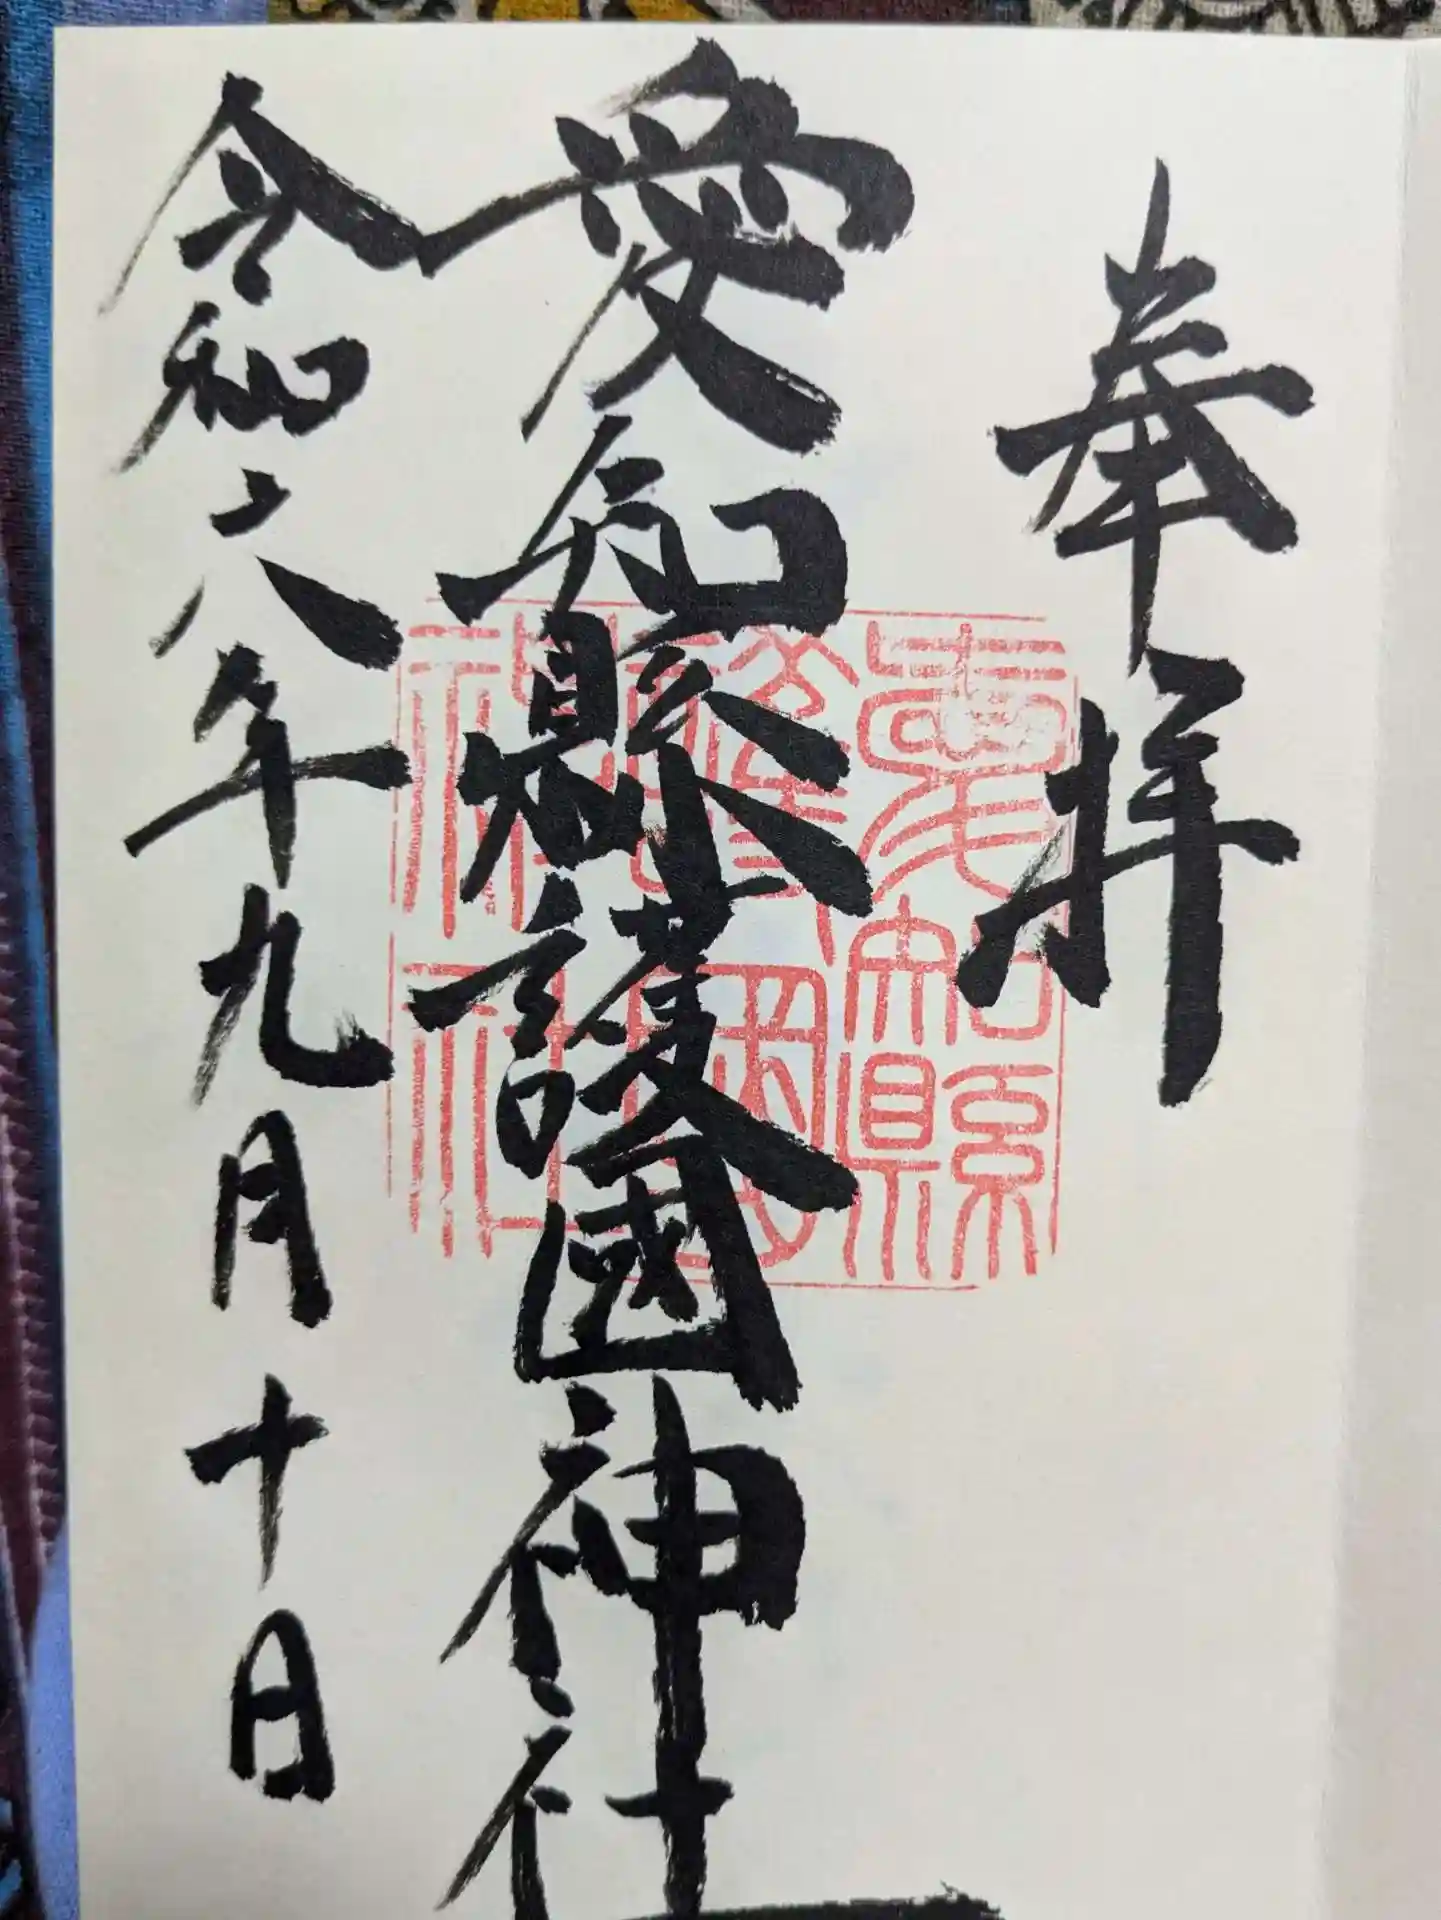 奉拝
愛知縣護國神社
令和六年九月十日
愛知縣
護國
神社